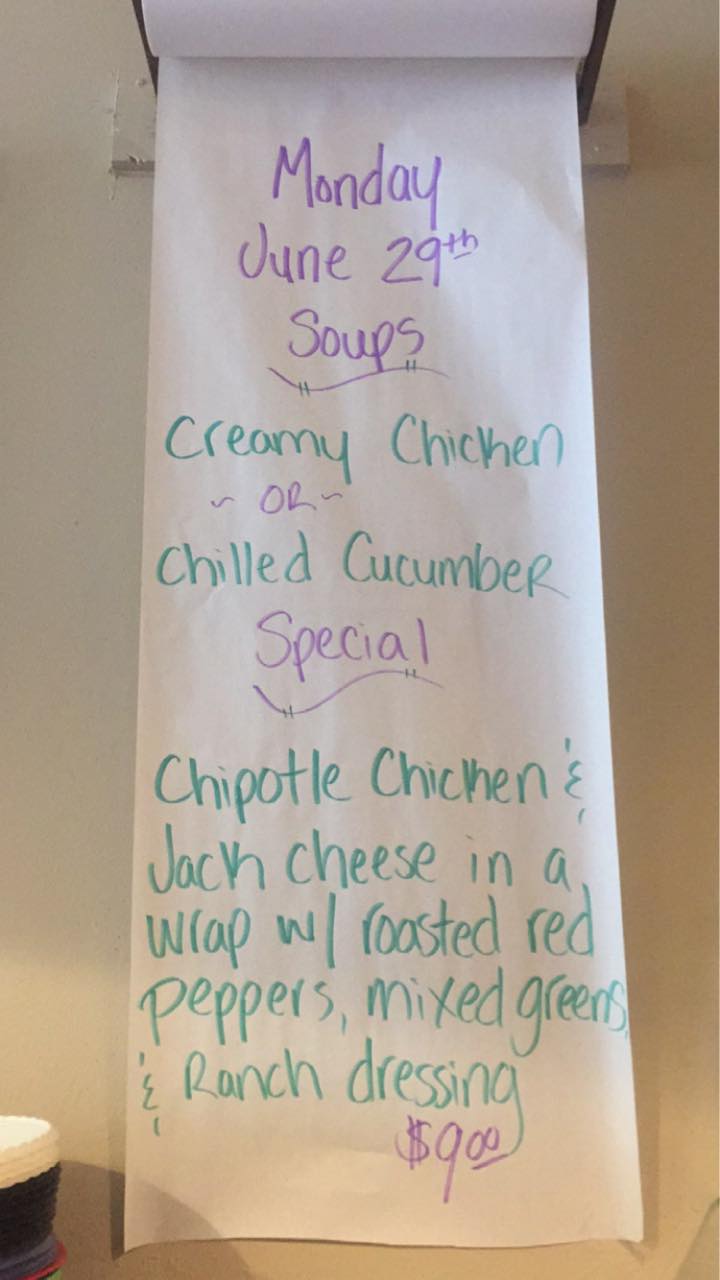 Monday
June 29th
Soups
Creamy Chicken
~ OR ~
Chilled Cucumber
Special
Chipotle Chicken &
Jack cheese in a
wrap w/ roasted red
peppers, mixed greens,
& Ranch dressing
$9.00